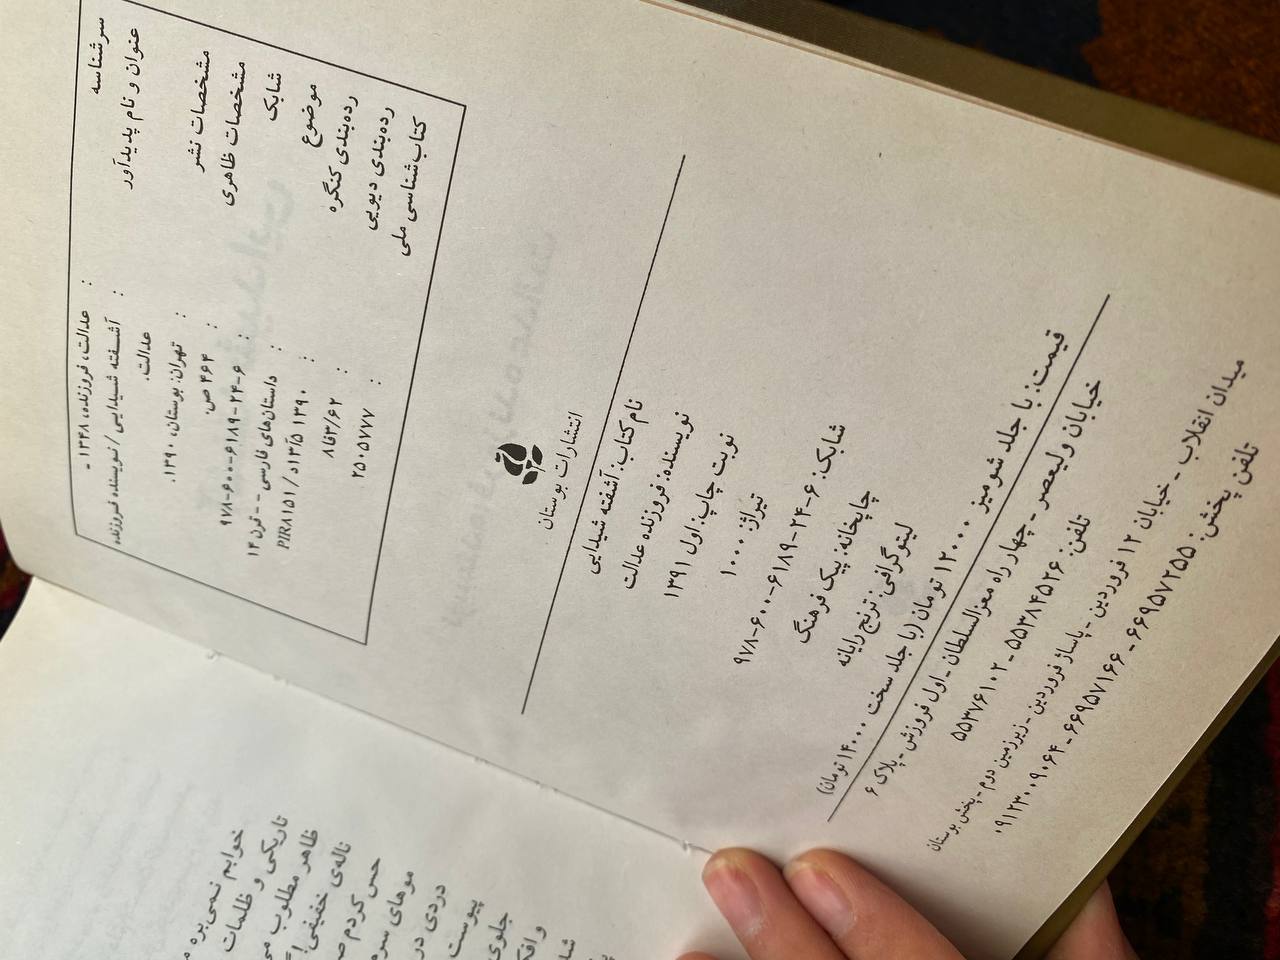 سرشناسه : عدالت، فروزنده، ۱۳۴۸ -
عنوان و نام پدیدآور : آشفته شیدایی / نویسنده فروزنده
عدالت.
مشخصات نشر : تهران: بوستان، ۱۳۹۰.
مشخصات ظاهری : ۴۶۴ ص.
شابک : ۹۷۸-۶۰۰-۶۱۸۹-۲۴-۶
موضوع : داستان‌های فارسی -- قرن ۱۴
رده‌بندی کنگره : ۱۳۹۰ ۵آ۱۳د/PIR۸۱۵۱
رده‌بندی دیویی : ۸فا۳/۶۲
کتاب‌شناسی ملی : ۲۵۰۵۷۷۷
انتشارات بوستان
نام کتاب: آشفته شیدایی
نویسنده: فروزنده عدالت
نوبت چاپ: اول ۱۳۹۱
تیراژ: ۱۰۰۰
شابک: ۶-۲۴-۶۱۸۹-۶۰۰-۹۷۸
چاپخانه: پیک فرهنگ
لیتوگرافی: ترنج رایانه
قیمت: با جلد شومیز ۱۲۰۰۰ تومان (با جلد سخت ۱۴۰۰۰ تومان)
خیابان ولیعصر - چهار راه معزالسلطان - اول فروزش - پلاک ۶
تلفن: ۵۵۳۸۴۵۲۶ - ۵۵۳۷۶۱۰۲
میدان انقلاب - خیابان ۱۲ فروردین - پاساژ فروردین - زیرزمین دوم - پخش بوستان
تلفن پخش: ۶۶۹۵۷۲۵۵ - ۶۶۹۵۷۱۶۶ - ۰۹۱۲۳۰۰۹۰۶۴
خوابم نمی‌بره
تاریکی و ظلمات
ظاهر مطلوب
ناله‌ی خفیفی!
حس کردم
موهای سر
دردی در
پیوست
جلوی